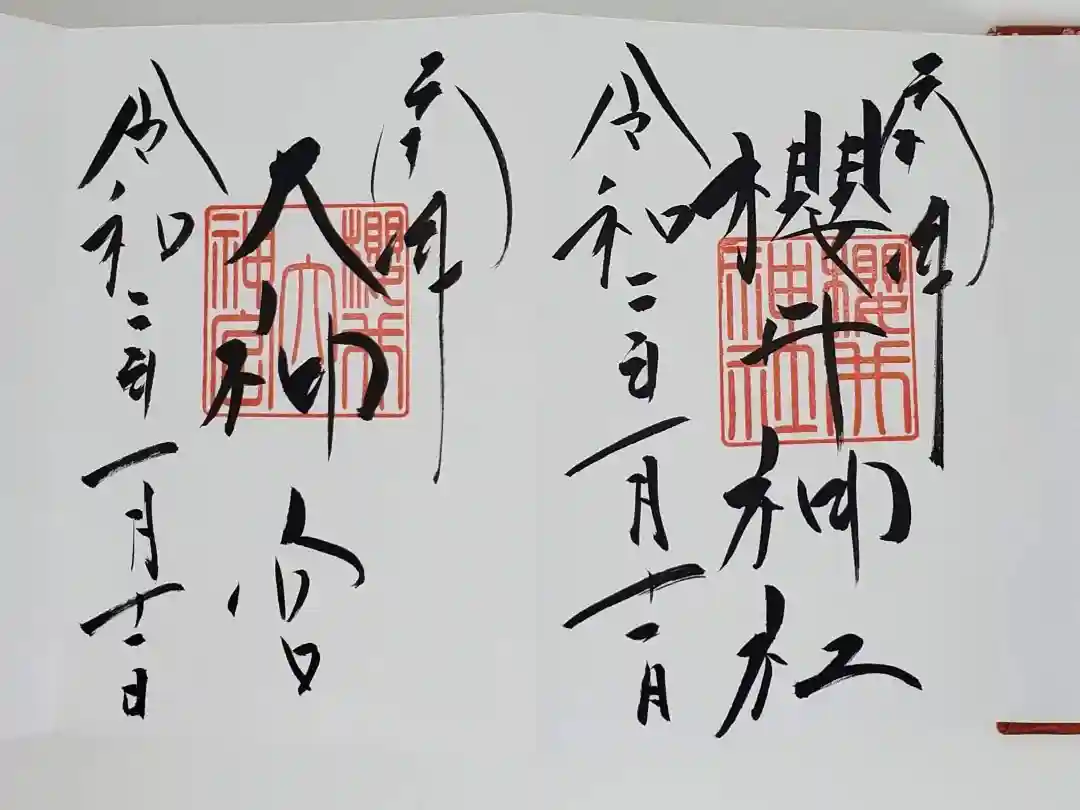 櫻井神社
令和二年一月十一日
櫻井
神社
大神宮
令和二年一月十一日
櫻井
大
神宮